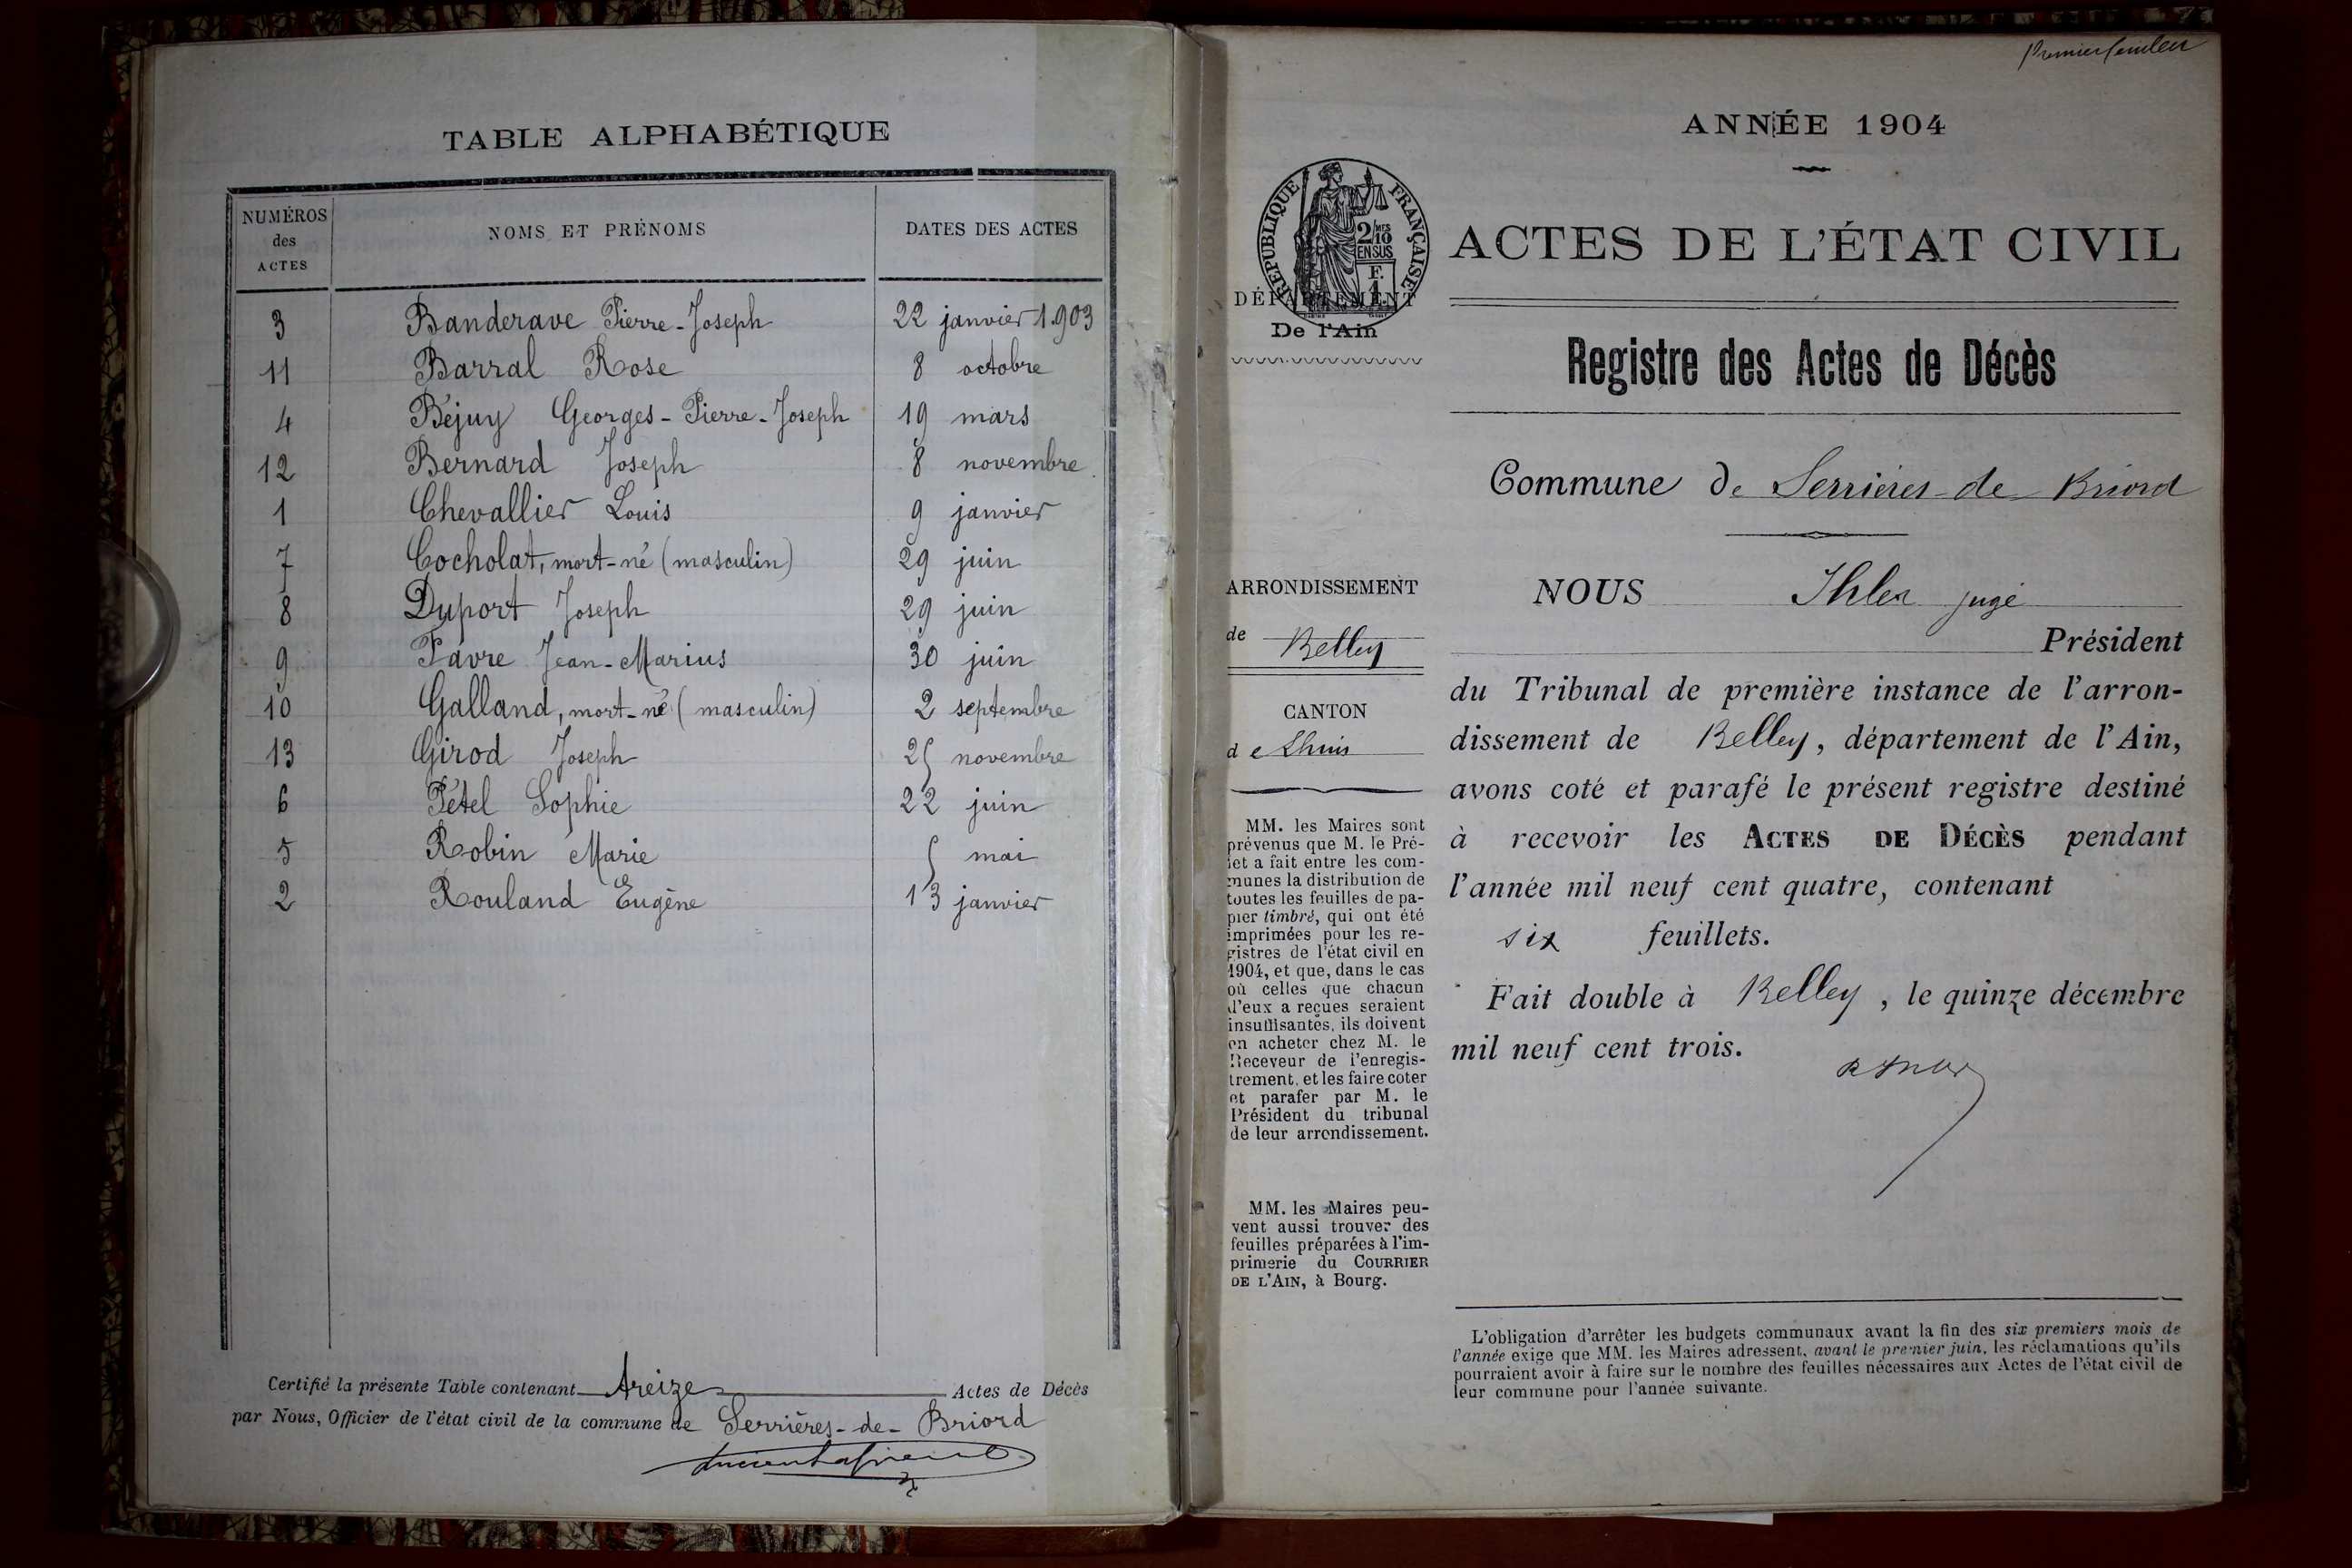 TABLE ALPHABÉTIQUE
NUMÉROS des ACTES NOMS ET PRÉNOMS DATES DES ACTES
3 Banderave Pierre-Joseph 22 janvier 1903
11 Barral Rose 8 octobre
4 Béjuy Georges-Pierre-Joseph 19 mars
12 Bernard Joseph 8 novembre
1 Chevallier Louis 9 janvier
7 Cocholat, mort-né (masculin) 29 juin
8 Duport Joseph 29 juin
9 Favre Jean-Marius 30 juin
10 Galland, mort-né (masculin) 2 septembre
13 Girod Joseph 25 novembre
6 Pétel Sophie 22 juin
5 Robin Marie 5 mai
2 Rouland Eugène 13 janvier
Certifié la présente Table contenant treize Actes de Décès
par Nous, Officier de l'état civil de la commune de Serrières-de-Briord
Premier feuillet
ANNÉE 1904
RÉPUBLIQUE FRANÇAISE
2/10 MES
EN SUS
F.
1
DÉPARTEMENT
De l'Ain
ACTES DE L'ÉTAT CIVIL
Registre des Actes de Décès
Commune de Serrières-de-Briord
ARRONDISSEMENT
de Belley
CANTON
de Lhuis
MM. les Maires sont
prévenus que M. le Pré-
fet a fait entre les com-
munes la distribution de
toutes les feuilles de pa-
pier timbré, qui ont été
imprimées pour les re-
gistres de l'état civil en
1904, et que, dans le cas
où celles que chacun
d'eux a reçues seraient
insuffisantes, ils doivent
en acheter chez M. le
Receveur de l'enregis-
trement, et les faire coter
et parafer par M. le
Président du tribunal
de leur arrondissement.
MM. les Maires peu-
vent aussi trouver des
feuilles préparées à l'im-
primerie du COURRIER
DE L'AIN, à Bourg.
NOUS Ihler juge
Président
du Tribunal de première instance de l'arron-
dissement de Belley, département de l'Ain,
avons coté et parafé le présent registre destiné
à recevoir les ACTES DE DÉCÈS pendant
l'année mil neuf cent quatre, contenant
six feuillets.
Fait double à Belley, le quinze décembre
mil neuf cent trois.
L'obligation d'arrêter les budgets communaux avant la fin des six premiers mois de
l'année exige que MM. les Maires adressent, avant le premier juin, les réclamations qu'ils
pourraient avoir à faire sur le nombre des feuilles nécessaires aux Actes de l'état civil de
leur commune pour l'année suivante.